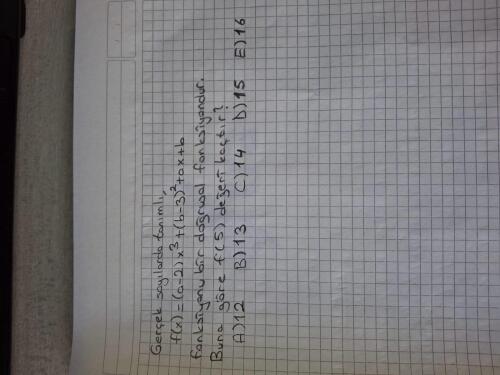 Gerçek sayılarda tanımlı,
f(x) = (a-2)x³ + (b-3)² + ax + b
fonksiyonu bir doğrusal fonksiyondur.
Buna göre f(5) değeri kaçtır?
A) 12 B) 13 C) 14 D) 15 E) 16